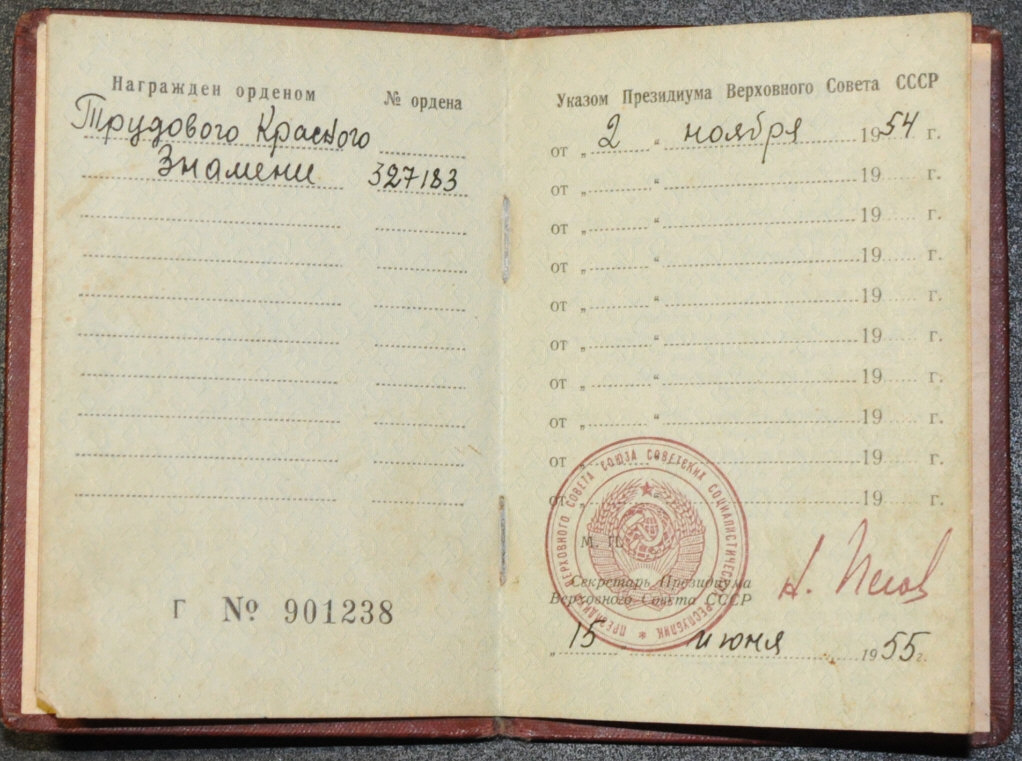 Награжден орденом № ордена
Трудового Красного
Знамени 327183
Г № 901238
Указом Президиума Верховного Совета СССР
от „ 2 “ ноября 1954 г.
от „ “ 19 г.
от „ “ 19 г.
от „ “ 19 г.
от „ “ 19 г.
от „ “ 19 г.
от „ “ 19 г.
от „ “ 19 г.
от „ “ 19 г.
от „ “ 19 г.
М. П.
ПРЕЗИДИУМ ВЕРХОВНОГО СОВЕТА СОЮЗА СОВЕТСКИХ СОЦИАЛИСТИЧЕСКИХ РЕСПУБЛИК *
Секретарь Президиума
Верховного Совета СССР
Н. Пегов
„ 15 “ июня 1955 г.